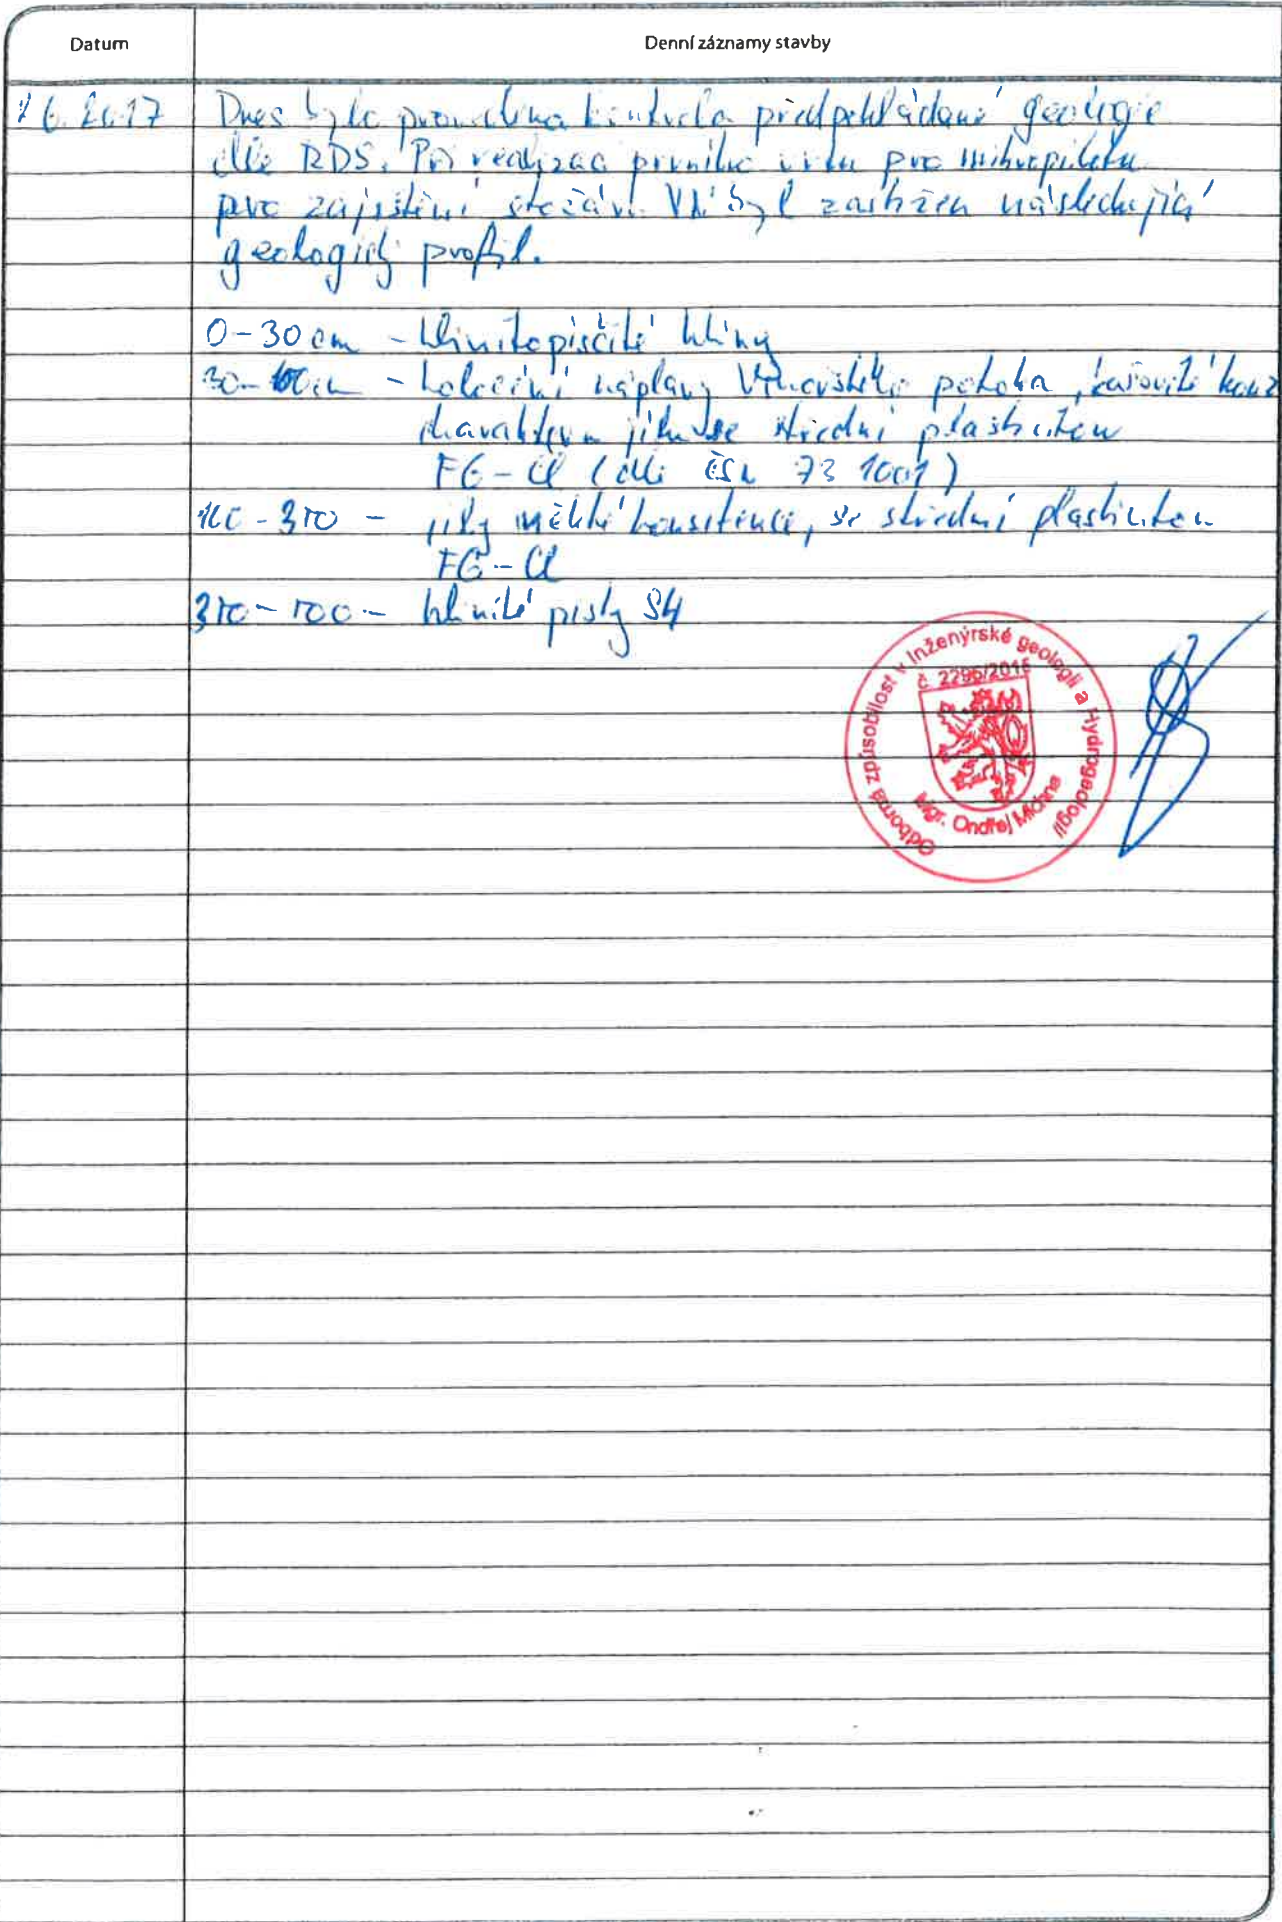 Datum
Denní záznamy stavby
6. 2017
Dnes byla provedena kontrola předpokládané geologie
dle RDS. Při realizaci prvního vrtu pro mikropilotu
pro zajištění stožáru byl zastižen následující
geologický profil.
0-30 cm - hlinitopísčité hlíny
30-100cm - holocénní náplavy potoka, kašovité konz
charakteru jílu se střední plasticitou
F6-CI (dle ČSN 73 1001)
100-350 - jíly měkké konsitence, se střední plasticitou
F6-CI
350-500 - hlinité písky S4
Odborná způsobilost v Inženýrské geologii a Hydrogeologii
č. 2296/2015
Mgr. Ondřej Michna